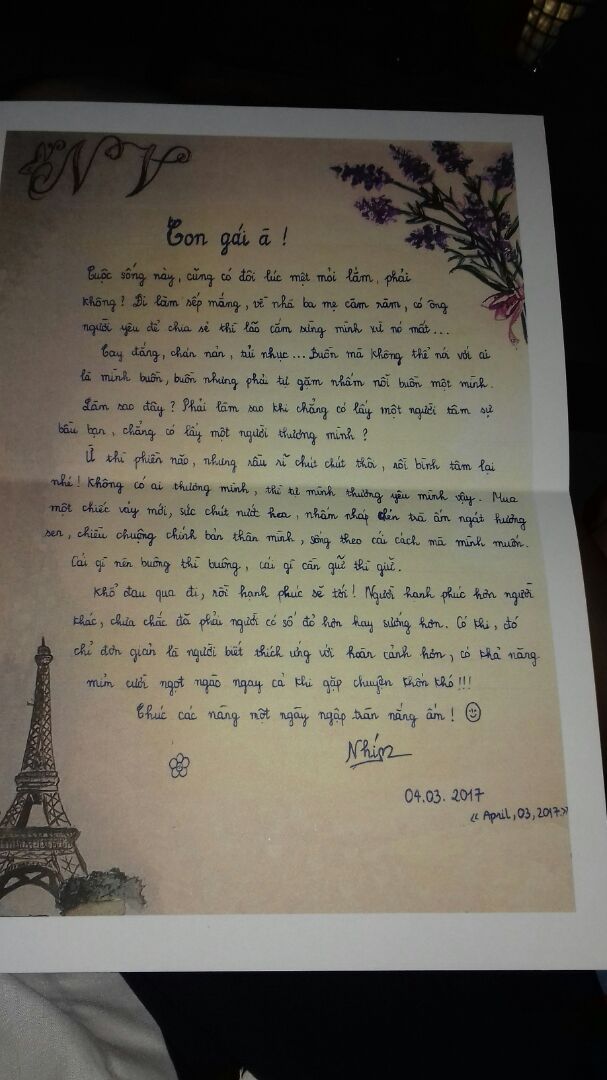 NV
Con gái à !
Cuộc sống này, cũng có đôi lúc mệt mỏi lắm, phải
không? Đi làm sếp mắng, về nhà ba mẹ cằm rằm, có ông
người yêu để chia sẻ thì lão cắm sừng mình xừ nó mất...
Cay đắng, chán nản, tủi nhục... Buồn mà không thể nói với ai
là mình buồn, buồn nhưng phải tự gặm nhấm nỗi buồn một mình.
Làm sao đây? Phải làm sao khi chẳng có lấy một người tâm sự
bầu bạn, chẳng có lấy một người thương mình?
Ừ thì phiền não, nhưng sầu bi chút chút thôi, rồi bình tâm lại
nhé! Không có ai thương mình, thì tự mình thương yêu mình vậy. Mua
một chiếc váy mới, sức chút nước hoa, nhâm nháp chén trà ấm ngát hương
sen, chiều chuộng chính bản thân mình, sống theo cái cách mà mình muốn.
Cái gì nên buông thì buông, cái gì cần giữ thì giữ.
Khổ đau qua đi, rồi hạnh phúc sẽ tới! Người hạnh phúc hơn người
khác, chưa chắc đã phải người có số đỏ hơn hay sướng hơn. Có khi, đó
chỉ đơn giản là người biết thích ứng với hoàn cảnh hơn, có khả năng
mỉm cười ngọt ngào ngay cả khi gặp chuyện khốn khó!!!
Chúc các nàng một ngày ngập tràn nắng ấm!
04.03.2017
<< April, 03, 2017>>